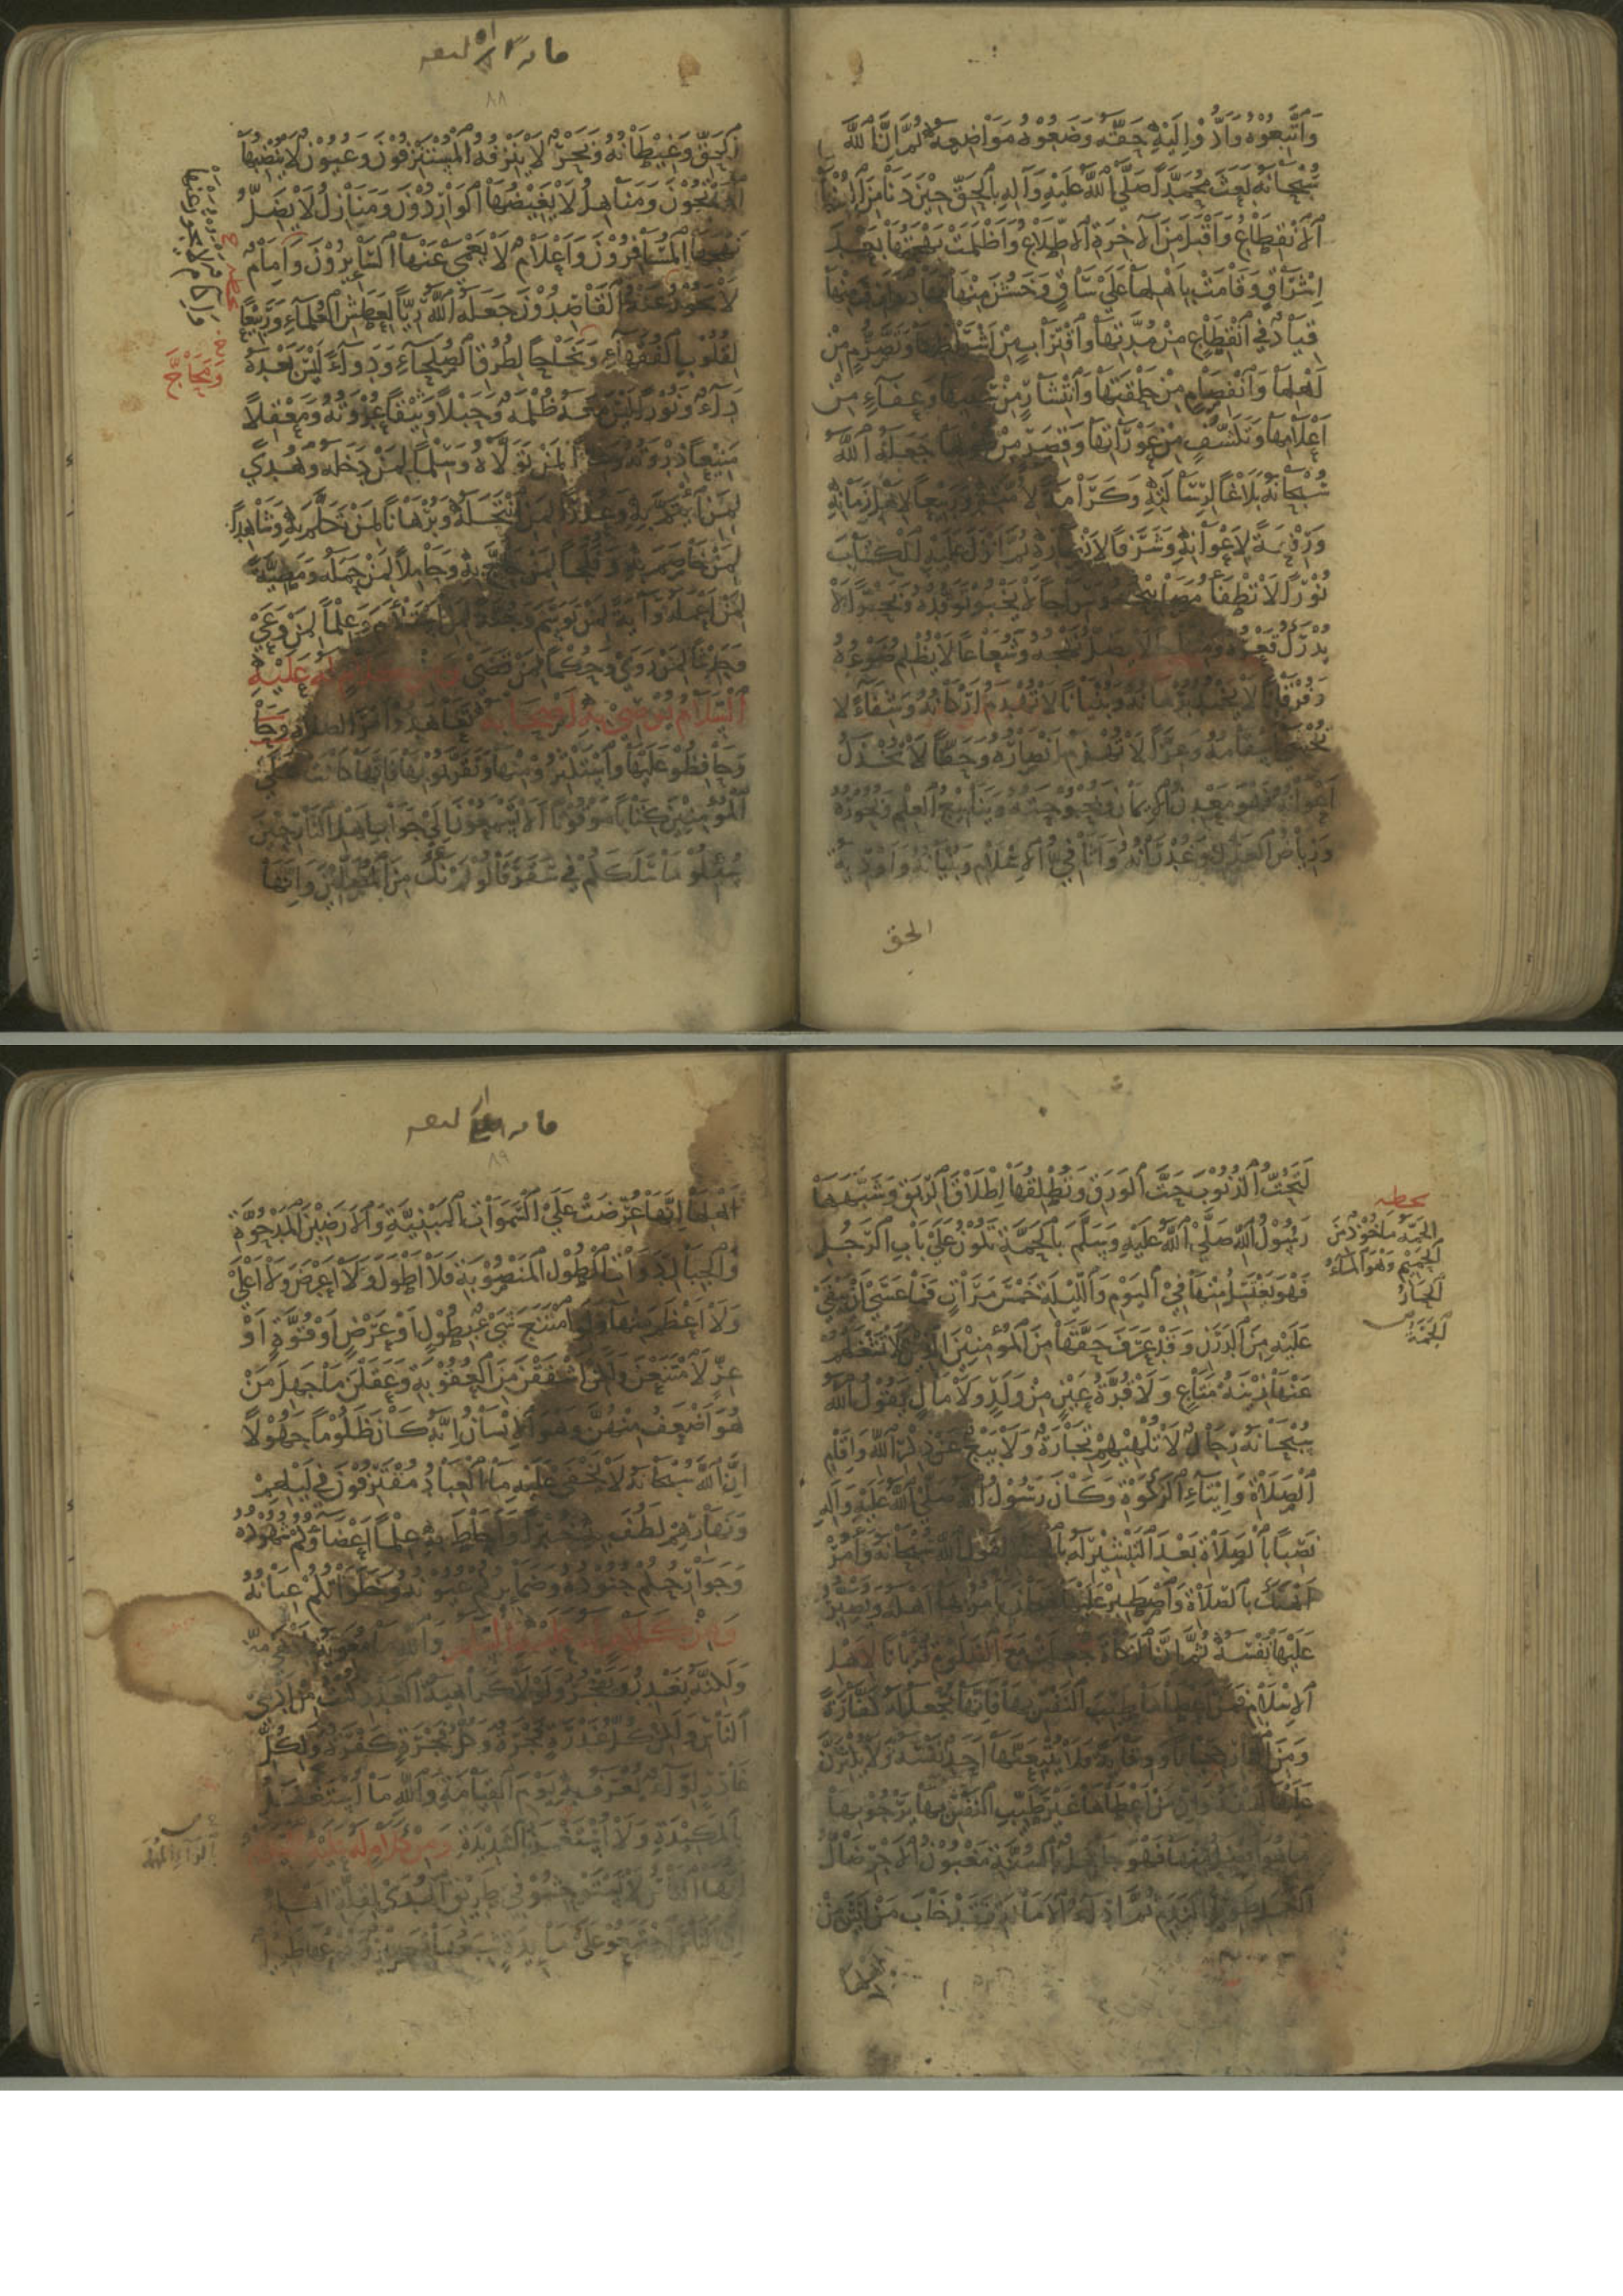 وَاتَّبِعُوهُ وَأَدُّوا إِلَيْهِ حَقَّهُ وَضَعُوهُ مَوَاضِعَهُ ثُمَّ إِنَّ اللَّهَ
سُبْحَانَهُ بَعَثَ مُحَمَّدًا صَلَّى اللَّهُ عَلَيْهِ وَآلِهِ بِالْحَقِّ حِينَ دَنَا مِنَ الدُّنْيَا
الْانْقِطَاعُ وَأَقْبَلَ مِنَ الْآخِرَةِ الْاطِّلَاعُ وَأَظْلَمَتْ بَهْجَتُهَا بَعْدَ
إِشْرَاقٍ وَقَامَتْ بِأَهْلِهَا عَلَى سَاقٍ وَخَشُنَ مِنْهَا مِهَادٌ وَأَزِفَ مِنْهَا
قِيَادٌ فِي انْقِطَاعٍ مِنْ مُدَّتِهَا وَاقْتِرَابٍ مِنْ أَشْرَاطِهَا وَتَصَرُّمٍ مِنْ
أَهْلِهَا وَانْفِصَامٍ مِنْ حَلْقَتِهَا وَانْتِشَارٍ مِنْ سَبَبِهَا وَعَفَاءٍ مِنْ
أَعْلَامِهَا وَتَكَشُّفٍ مِنْ عَوْرَاتِهَا وَقِصَرٍ مِنْ طُولِهَا جَعَلَهُ اللَّهُ
سُبْحَانَهُ بَلَاغًا لِرِسَالَتِهِ وَكَرَامَةً لِأُمَّتِهِ وَرَبِيعًا لِأَهْلِ زَمَانِهِ
وَرِفْعَةً لِأَعْوَانِهِ وَشَرَفًا لِأَنْصَارِهِ ثُمَّ أَنْزَلَ عَلَيْهِ الْكِتَابَ
نُورًا لَا تُطْفَأُ مَصَابِيحُهُ وَسِرَاجًا لَا يَخْبُو تَوَقُّدُهُ وَبَحْرًا لَا
يُدْرَكُ قَعْرُهُ وَمِنْهَاجًا لَا يُضِلُّ نَهْجُهُ وَشُعَاعًا لَا يُظْلِمُ ضَوْءُهُ
وَفُرْقَانًا لَا يَخْمَدُ بُرْهَانُهُ وَبُنْيَانًا لَا تُهْدَمُ أَرْكَانُهُ وَشِفَاءً لَا
تُخْشَى أَسْقَامُهُ وَعِزًّا لَا تُهْزَمُ أَنْصَارُهُ وَحَقًّا لَا تُخْذَلُ
أَعْوَانُهُ فَهُوَ مَعْدِنُ الْإِيمَانِ وَبُحْبُوحَتُهُ وَيَنَابِيعُ الْعِلْمِ وَبُحُورُهُ
وَرِيَاضُ الْعَدْلِ وَغُدْرَانُهُ وَأَثَافِيُّ الْإِسْلَامِ وَبُنْيَانُهُ وَأَوْدِيَةُ
الحق
٨٨
الْحَقِّ وَغِيطَانُهُ وَبَحْرٌ لَا يَنْزِفُهُ الْمُسْتَنْزِفُونَ وَعُيُونٌ لَا يُنْضِبُهَا
الْمَاتِحُونَ وَمَنَاهِلُ لَا يُغِيضُهَا الْوَارِدُونَ وَمَنَازِلُ لَا يَضِلُّ
نَهْجَهَا الْمُسَافِرُونَ وَأَعْلَامٌ لَا يَعْمَى عَنْهَا السَّائِرُونَ وَآكَامٌ
لَا يَجُوزُ عَنْهَا الْقَاصِدُونَ جَعَلَهُ اللَّهُ رِيًّا لِعَطَشِ الْعُلَمَاءِ وَرَبِيعًا
لِقُلُوبِ الْفُقَهَاءِ وَمَحَاجَّ لِطُرُقِ الصُّلَحَاءِ وَدَوَاءً لَيْسَ بَعْدَهُ
دَاءٌ وَنُورًا لَيْسَ مَعَهُ ظُلْمَةٌ وَحَبْلًا وَثِيقًا عُرْوَتُهُ وَمَعْقِلًا
مَنِيعًا ذِرْوَتُهُ وَعِزًّا لِمَنْ تَوَلَّاهُ وَسِلْمًا لِمَنْ دَخَلَهُ وَهُدًى
لِمَنِ ائْتَمَّ بِهِ وَعُذْرًا لِمَنِ انْتَحَلَهُ وَبُرْهَانًا لِمَنْ تَكَلَّمَ بِهِ وَشَاهِدًا
لِمَنْ خَاصَمَ بِهِ وَفَلْجًا لِمَنْ حَاجَّ بِهِ وَحَامِلًا لِمَنْ حَمَلَهُ وَمَطِيَّةً
لِمَنْ أَعْمَلَهُ وَآيَةً لِمَنْ تَوَسَّمَ وَجُنَّةً لِمَنِ اسْتَلْأَمَ وَعِلْمًا لِمَنْ وَعَى
وَحَدِيثًا لِمَنْ رَوَى وَحُكْمًا لِمَنْ قَضَى وَمِنْ كَلَامٍ لَهُ عَلَيْهِ
السَّلَامُ يُوصِي بِهِ أَصْحَابَهُ تَعَاهَدُوا أَمْرَ الصَّلَاةِ
وَحَافِظُوا عَلَيْهَا وَاسْتَكْثِرُوا مِنْهَا وَتَقَرَّبُوا بِهَا فَإِنَّهَا كَانَتْ عَلَى
الْمُؤْمِنِينَ كِتَابًا مَوْقُوتًا أَلَا تَسْمَعُونَ إِلَى جَوَابِ أَهْلِ النَّارِ حِينَ
سُئِلُوا مَا سَلَكَكُمْ فِي سَقَرَ قَالُوا لَمْ نَكُ مِنَ الْمُصَلِّينَ وَإِنَّهَا
وَمَحَاجَّ
لَتَحُتُّ الذُّنُوبَ حَتَّ الْوَرَقِ وَتُطْلِقُهَا إِطْلَاقَ الرِّبَقِ وَشَبَّهَهَا
رَسُولُ اللَّهِ صَلَّى اللَّهُ عَلَيْهِ وَسَلَّمَ بِالْحَمَّةِ تَكُونُ عَلَى بَابِ الرَّجُلِ
فَهُوَ يَغْتَسِلُ مِنْهَا فِي الْيَوْمِ وَاللَّيْلَةِ خَمْسَ مَرَّاتٍ فَمَا عَسَى أَنْ يَبْقَى
عَلَيْهِ مِنَ الدَّرَنِ وَقَدْ عَرَفَ حَقَّهَا مِنَ الْمُؤْمِنِينَ الَّذِينَ لَا تَشْغَلُهُمْ
عَنْهَا زِينَةُ مَتَاعٍ وَلَا قُرَّةُ عَيْنٍ مِنْ وَلَدٍ وَلَا مَالٍ يَقُولُ اللَّهُ
سُبْحَانَهُ رِجَالٌ لَا تُلْهِيهِمْ تِجَارَةٌ وَلَا بَيْعٌ عَنْ ذِكْرِ اللَّهِ وَإِقَامِ
الصَّلَاةِ وَإِيتَاءِ الزَّكَوةِ وَكَانَ رَسُولُ اللَّهِ صَلَّى اللَّهُ عَلَيْهِ وَآلِهِ
نَصِبًا بِالصَّلَاةِ بَعْدَ التَّبْشِيرِ لَهُ بِالْجَنَّةِ لِقَوْلِ اللَّهِ سُبْحَانَهُ وَأْمُرْ
أَهْلَكَ بِالصَّلَاةِ وَاصْطَبِرْ عَلَيْهَا فَكَانَ يَأْمُرُ بِهَا أَهْلَهُ وَيُصَبِّرُ
عَلَيْهَا نَفْسَهُ ثُمَّ إِنَّ الزَّكَاةَ جُعِلَتْ مَعَ الصَّلَوةِ قُرْبَانًا لِأَهْلِ
الْإِسْلَامِ فَمَنْ أَعْطَاهَا طَيِّبَ النَّفْسِ بِهَا فَإِنَّهَا تُجْعَلُ لَهُ كَفَّارَةً
وَمِنَ النَّارِ حِجَابًا وَوِقَايَةً وَلَا يُتْبِعَنَّهَا أَحَدٌ نَفْسَهُ وَلَا يُكْثِرَنَّ
عَلَيْهَا لَهَفَهُ وَإِنَّ مَنْ أَعْطَاهَا غَيْرَ طَيِّبِ النَّفْسِ بِهَا يَرْجُو بِهَا
مَا هُوَ أَفْضَلُ مِنْهَا فَهُوَ جَاهِلٌ بِالسُّنَّةِ مَغْبُونُ الْأَجْرِ ضَالُّ
الْعَمَلِ طَوِيلُ النَّدَمِ ثُمَّ أَدَاءَ الْأَمَانَةِ فَقَدْ خَابَ مَنْ لَيْسَ مِنْ
الحمة مأخوذ من
الحميم وهو الماء
الحار
٨٩
أَهْلِهَا إِنَّهَا عُرِضَتْ عَلَى السَّمَوَاتِ الْمَبْنِيَّةِ وَالْأَرَضِينَ الْمَدْحُوَّةِ
وَالْجِبَالِ ذَوَاتِ الطُّولِ الْمَنْصُوبَةِ فَلَا أَطْوَلَ وَلَا أَعْرَضَ وَلَا أَعْلَى
وَلَا أَعْظَمَ مِنْهَا وَلَوِ امْتَنَعَ شَيْءٌ بِطُولٍ أَوْ عَرْضٍ أَوْ قُوَّةٍ أَوْ
عِزٍّ لَامْتَنَعْنَ وَلَكِنْ أَشْفَقْنَ مِنَ الْعُقُوبَةِ وَعَقَلْنَ مَا جَهِلَ مَنْ
هُوَ أَضْعَفُ مِنْهُنَّ وَهُوَ الْإِنْسَانُ إِنَّهُ كَانَ ظَلُومًا جَهُولًا
إِنَّ اللَّهَ سُبْحَانَهُ لَا يَخْفَى عَلَيْهِ مَا الْعِبَادُ مُقْتَرِفُونَ فِي لَيْلِهِمْ
وَنَهَارِهِمْ لَطُفَ بِهِ خُبْرًا وَأَحَاطَ بِهِ عِلْمًا أَعْضَاؤُكُمْ شُهُودُهُ
وَجَوَارِحُكُمْ جُنُودُهُ وَضَمَائِرُكُمْ عُيُونُهُ وَخَلَوَاتُكُمْ عِيَانُهُ
وَمِنْ كَلَامٍ لَهُ عَلَيْهِ السَّلَامُ وَاللَّهِ مَا مُعَاوِيَةُ بِأَدْهَى مِنِّي
وَلَكِنَّهُ يَغْدِرُ وَيَفْجُرُ وَلَوْلَا كَرَاهِيَةُ الْغَدْرِ لَكُنْتُ مِنْ أَدْهَى
النَّاسِ وَلَكِنْ كُلُّ غَدْرَةٍ فَجْرَةٌ وَكُلُّ فَجْرَةٍ كَفْرَةٌ وَلِكُلِّ
غَادِرٍ لِوَاءٌ يُعْرَفُ بِهِ يَوْمَ الْقِيَامَةِ وَاللَّهِ مَا أُسْتَغْفَلُ
بِالْمَكِيدَةِ وَلَا أُسْتَغْمَزُ بِالشَّدِيدَةِ وَمِنْ كَلَامٍ لَهُ عَلَيْهِ السَّلَامُ
أَيُّهَا النَّاسُ لَا تَسْتَوْحِشُوا فِي طَرِيقِ الْهُدَى لِقِلَّةِ أَهْلِهِ
فَإِنَّ النَّاسَ اجْتَمَعُوا عَلَى مَائِدَةٍ شِبَعُهَا قَصِيرٌ وَجُوعُهَا طَوِيلٌ